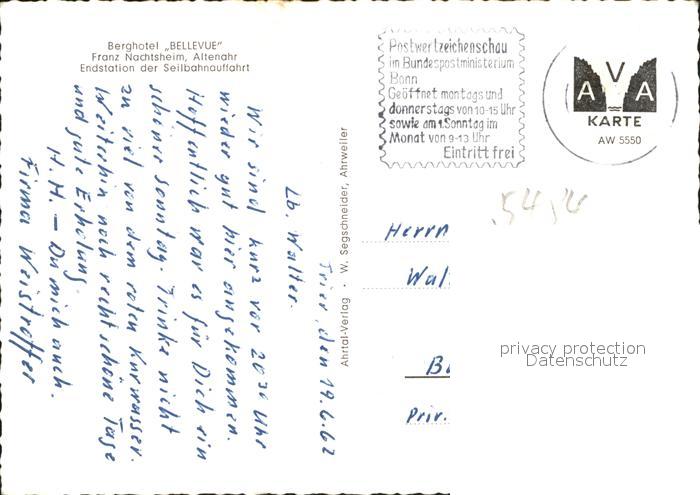 Berghotel „BELLEVUE"
Franz Nachtsheim, Altenahr
Endstation der Seilbahnauffahrt
Postwertzeichenschau
im Bundespostministerium
Bonn
Geöffnet montags und
donnerstags von 10-15 Uhr
sowie am 1. Sonntag im
Monat von 9-13 Uhr
Eintritt frei
AVA
KARTE
AW 5550
Ahrtal-Verlag · W. Segschneider, Ahrweiler
Trier, den 19.6.62
Lb. Walter.
Wir sind kurz vor 20 30 Uhr
wieder gut hier angekommen.
Hoffentlich war es für Dich ein
schöner Sonntag. Trinke nicht
zu viel von dem roten Kurwasser.
Weiterhin noch recht schöne Tage
und gute Erholung.
H. H. – Du mich auch.
Firma Weistroffer
Herrn
Wal
Priv.
privacy protection
Datenschutz